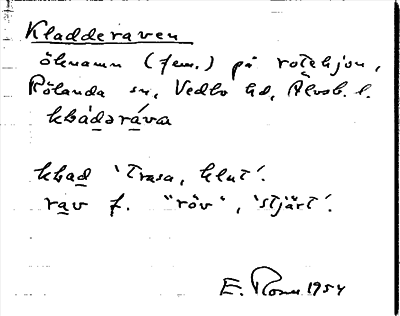 Kladderaven
öknamn (fem.) på rotehjon,
Rölanda sn, Vedbo hd, Älvsb. l.
klad̲ərava
klad 'trasa, klut'.
rav f. "röv", 'stjärt'.
E. 1954